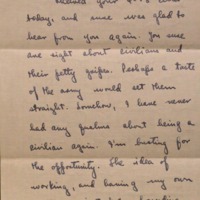 today, and sure was glad to
hear from you again. You sure
are right about civilians and
their petty gripes. Perhaps a taste
of the army would set them
straight. Somehow, I have never
had any qualms about being a
civilian again. I'm busting for
the opportunity. The idea of
working, and having my own